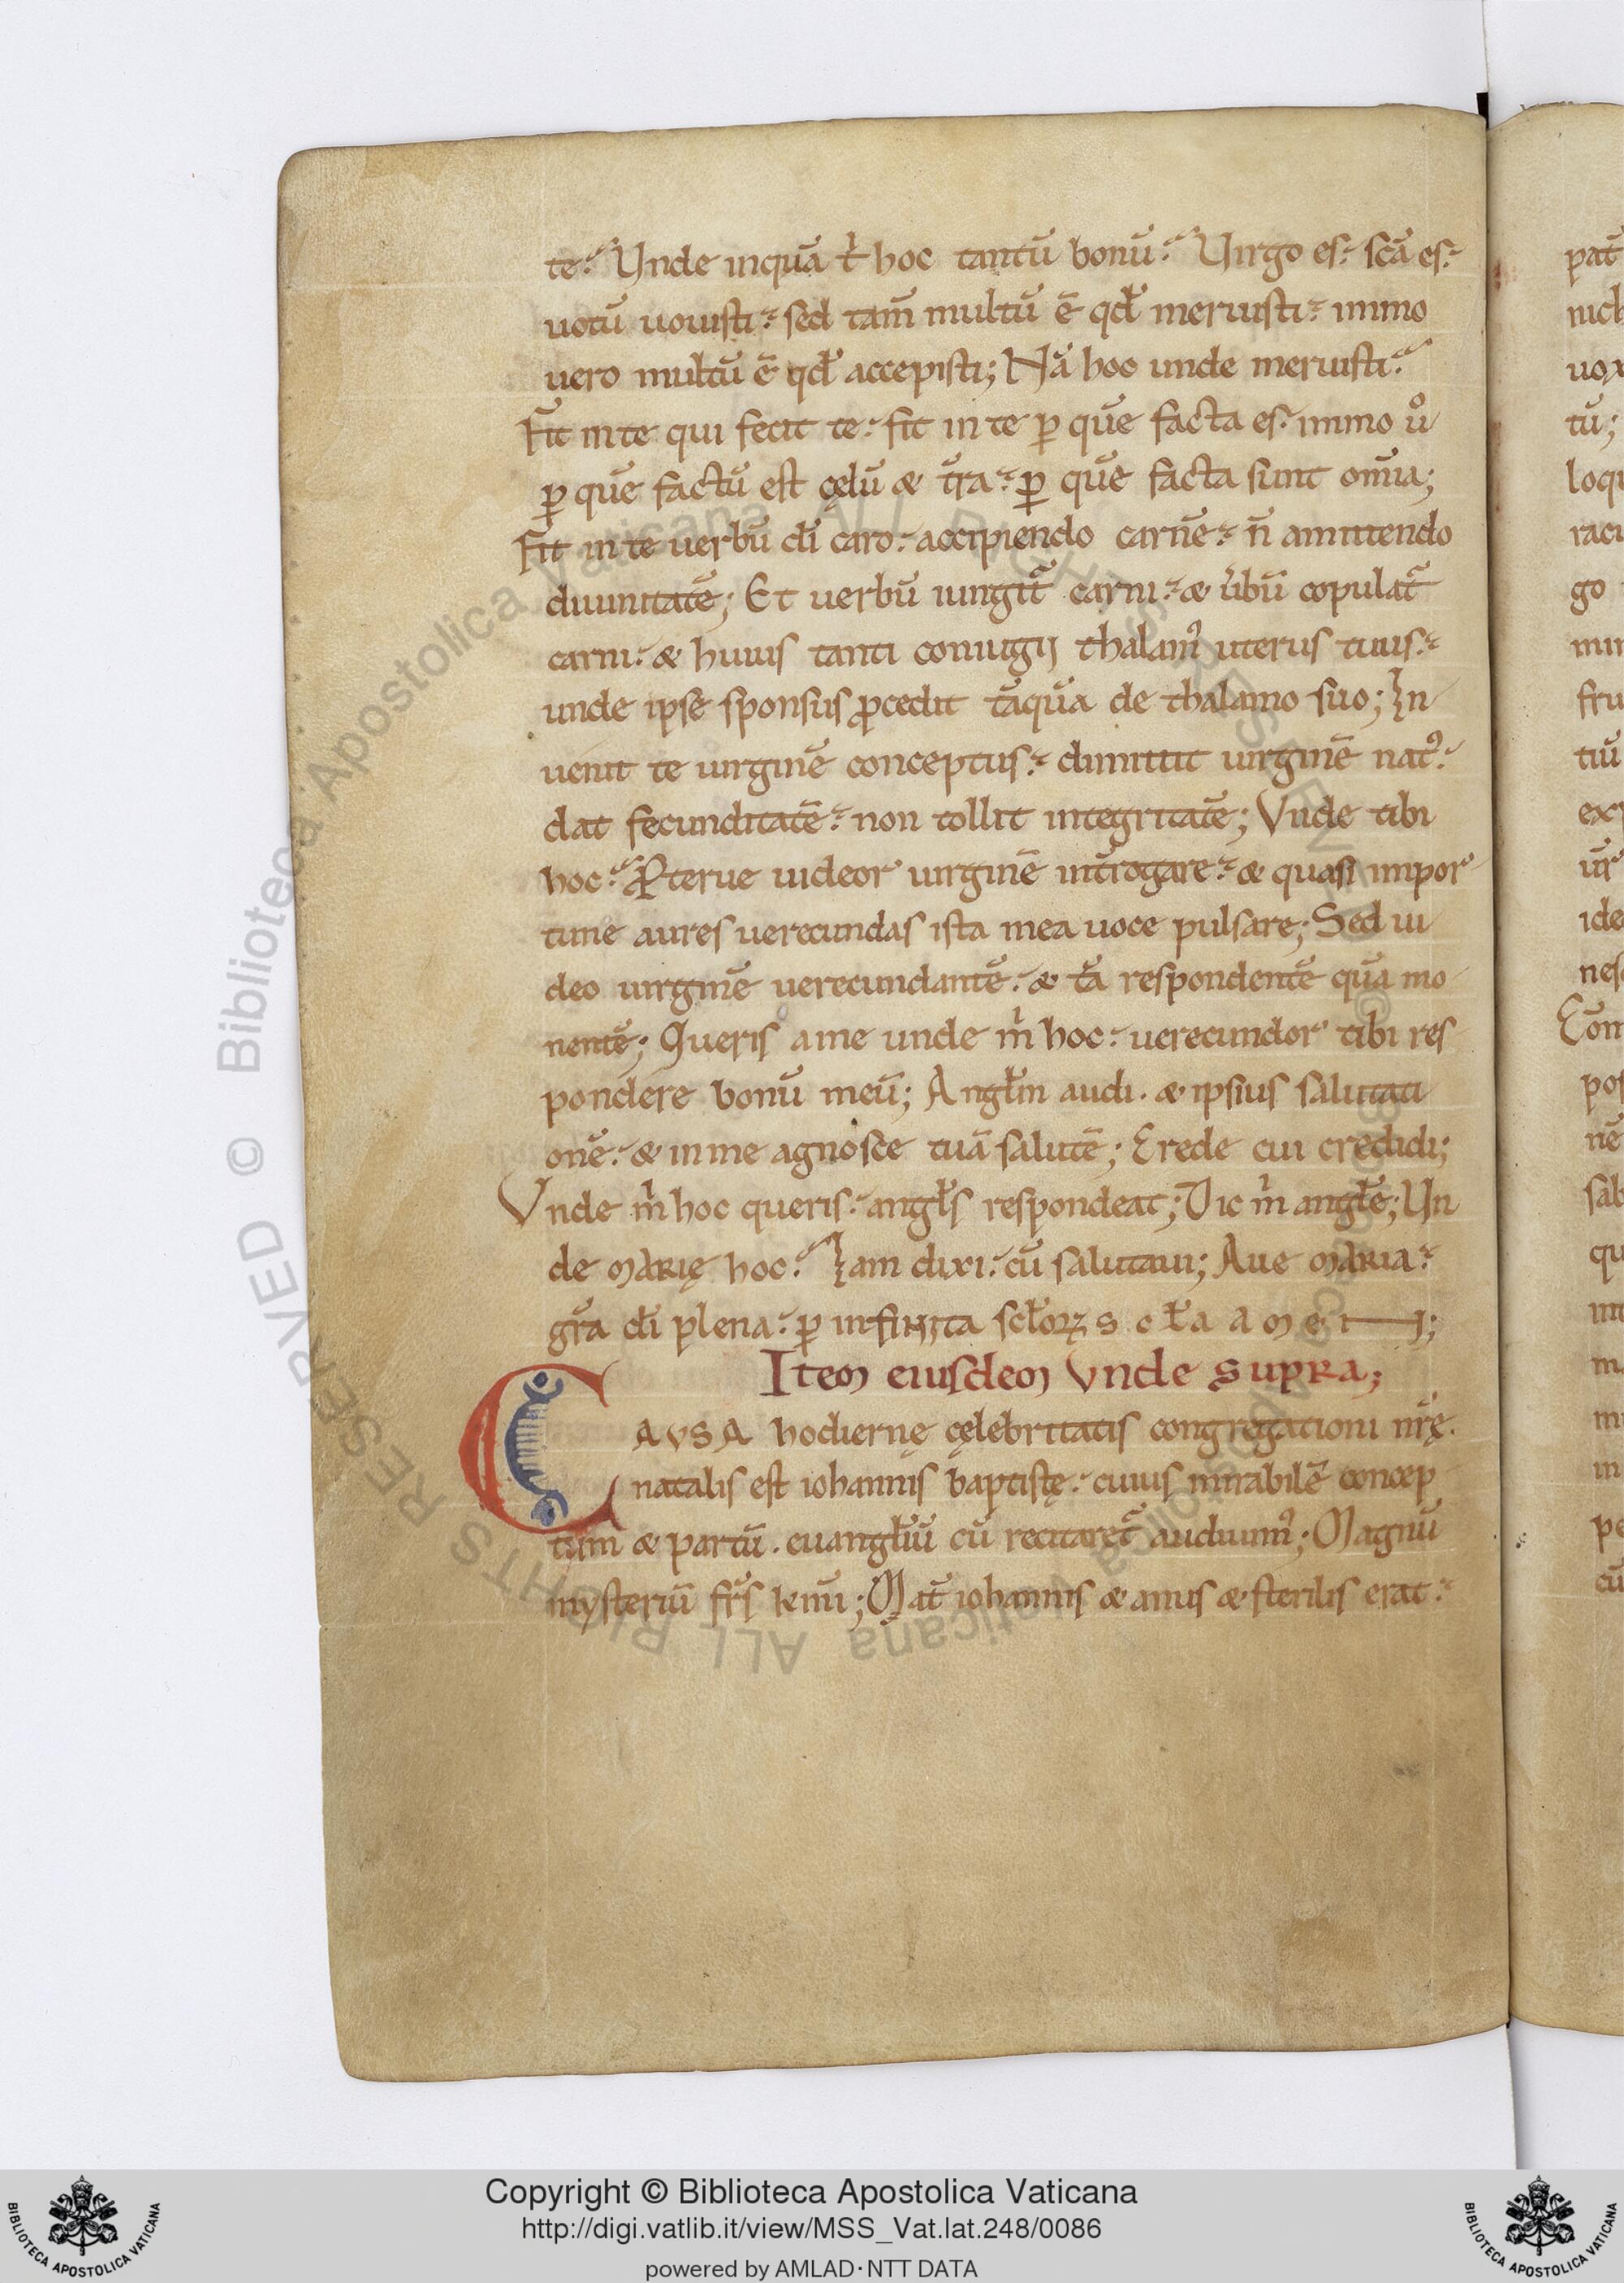 te? Unde inquā t̉ hoc tantū bonū? Uirgo es: scā es:
uotū uouisti: sed tam̄ multū ē qđ meruisti: immo
uero multū ē qđ accepisti; Nā hoc unde meruisti?
Fit in te qui fecit te: fit in te ꝑ quē facta es: immo ů
ꝑ quē factū est cęlū & t̄ra: ꝑ quē facta sunt om̄ia;
Fit in te uerbū dī caro: accipiendo carnē: n̄ amittendo
diuinitatē; Et uerbū iungit᷑ carni: & u̓bū copulat᷑
carni: & huius tanti coniugij thalam᾿ uterus tuus:
unde ipse sponsus ꝓcedit tāquā de thalamo suo; In
uenit te uirginē conceptus: dimittit uirginē nat᾿:
dat fecunditatē: non tollit integritatē; Vnde tibi
hoc? Ꝓterue uideor uirginē int̄rogare: & quasi impor
tune aures uerecundas ista mea uoce pulsare; Sed ui
deo uirginē uerecundantē: & tā respondentē quā mo
nentē; Queris a me unde m̉ hoc: uerecundor tibi res
pondere bonū meū; Angłm audi. & ipsius salutati
onē: & in me agnosce tuā salutē; Crede cui credidi;
Vnde m̉ hoc queris: angłs respondeat; Dic m̉ angłe; Un
de MARIę hoc? Iam dixi: cū salutaui; Aue MARIA:
gr̄a dī plena: ꝑ infinita scłoꝝ s c ła A M e N;
Item eiusdem Vnde supra;
CAVSA hodiernę cęlebritatis congregationi nr̄ę.
natalis est iohannis baptistę: cuius mirabilē concep
tum & partū. euangłiū cū recitaret᷑ audiuim᾿; Magnū
mysteriū fr̄s kmī; Mat̄ iohannis & anus & sterilis erat:
pat
nich
uox
tū;
loqu
raci
go
mir
fru
tiū
ex
ur̄
ide
nes
Com
pos
nē
sal
qu
int
m
m
in
pe
cū
© Biblioteca Apostolica Vaticana ALL RIGHTS RESERVED
© Biblioteca Apostolica Vaticana ALL RIGHTS RESERVED
Copyright © Biblioteca Apostolica Vaticana
http://digi.vatlib.it/view/MSS_Vat.lat.248/0086
powered by AMLAD·NTT DATA
BIBLIOTECA APOSTOLICA VATICANA
BIBLIOTECA APOSTOLICA VATICANA